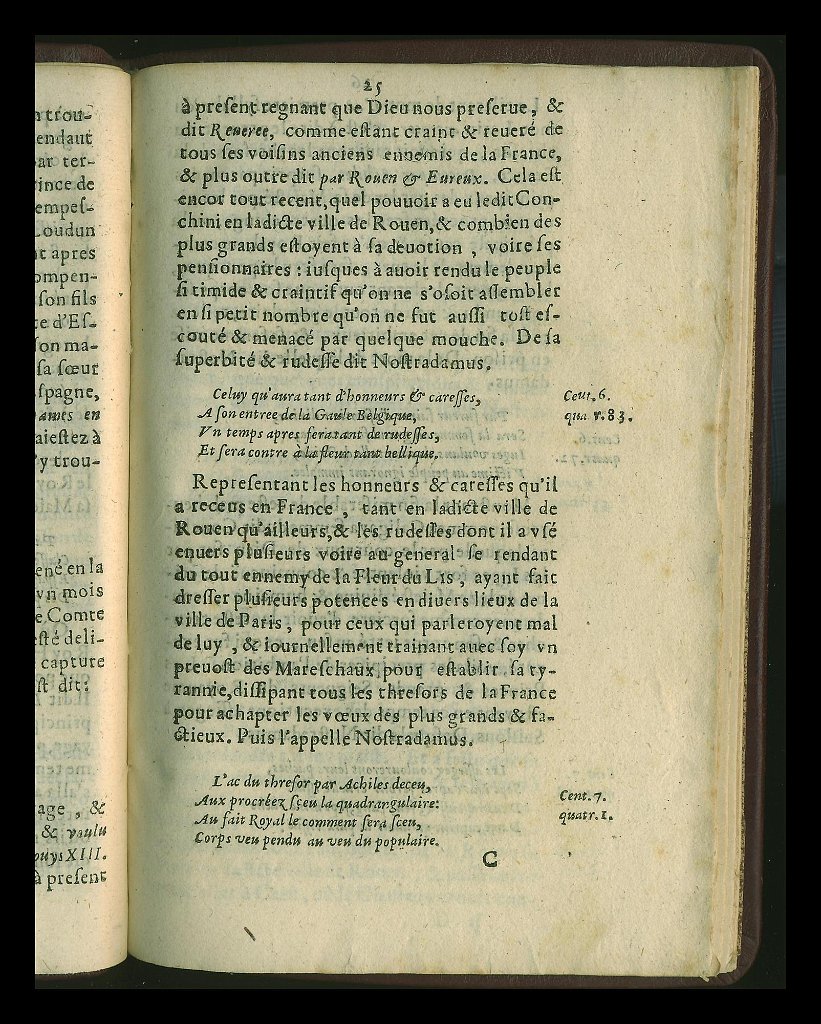 n trou-
endaut
ar ter-
ince de
empeſ-
Loudun
t apres
ompen-
ſon fils
te d'Eſ-
ſon ma-
ſa ſœur
ſpagne,
en
aieſtez à
'y trou-
ené en la
vn mois
e Comte
eſté deli-
capture
ſt dit:
age, &
& vaulu
ouys XIII.
à preſent
25
à preſent regnant que Dieu nous preſerue, &
dit Reueree, comme eſtant craint & reueré de
tous ſes voiſins anciens ennemis de la France,
& plus outre dit par Rouen & Eureux. Cela eſt
encor tout recent, quel pouuoir a eu ledit Con-
chini en ladicte ville de Rouen, & combien des
plus grands eſtoyent à ſa deuotion, voire ſes
penſionnaires: iuſques à auoir rendu le peuple
ſi timide & craintif qu'on ne s'oſoit aſſembler
en ſi petit nombre qu'on ne fut auſſi toſt eſ-
couté & menacé par quelque mouche. De ſa
ſuperbité & rudeſſe dit Noſtradamus.
Celuy qu'aura tant d'honneurs & careſſes,
A ſon entree de la Gaule Belgique,
Vn temps apres fera tant de rudeſſes,
Et ſera contre à la fleur tant bellique.
Cent. 6.
qua r. 83.
Repreſentant les honneurs & careſſes qu'il
a receus en France, tant en ladicte ville de
Rouen qu'ailleurs, & les rudeſſes dont il a vſé
enuers pluſieurs voire au general ſe rendant
du tout ennemy de la Fleur du Lis, ayant fait
dreſſer pluſieurs potences en diuers lieux de la
ville de Paris, pour ceux qui parleroyent mal
de luy, & iournellement trainant auec ſoy vn
preuoſt des Mareſchaux pour eſtablir ſa ty-
rannie, diſſipant tous les threſors de la France
pour achapter les vœux des plus grands & fa-
ctieux. Puis l'appelle Noſtradamus.
L'ac du threſor par Achiles deceu,
Aux procréez ſçeu la quadrangulaire:
Au fait Royal le comment ſera ſceu,
Corps veu pendu au veu du populaire.
Cent. 7.
quatr. 1.
C